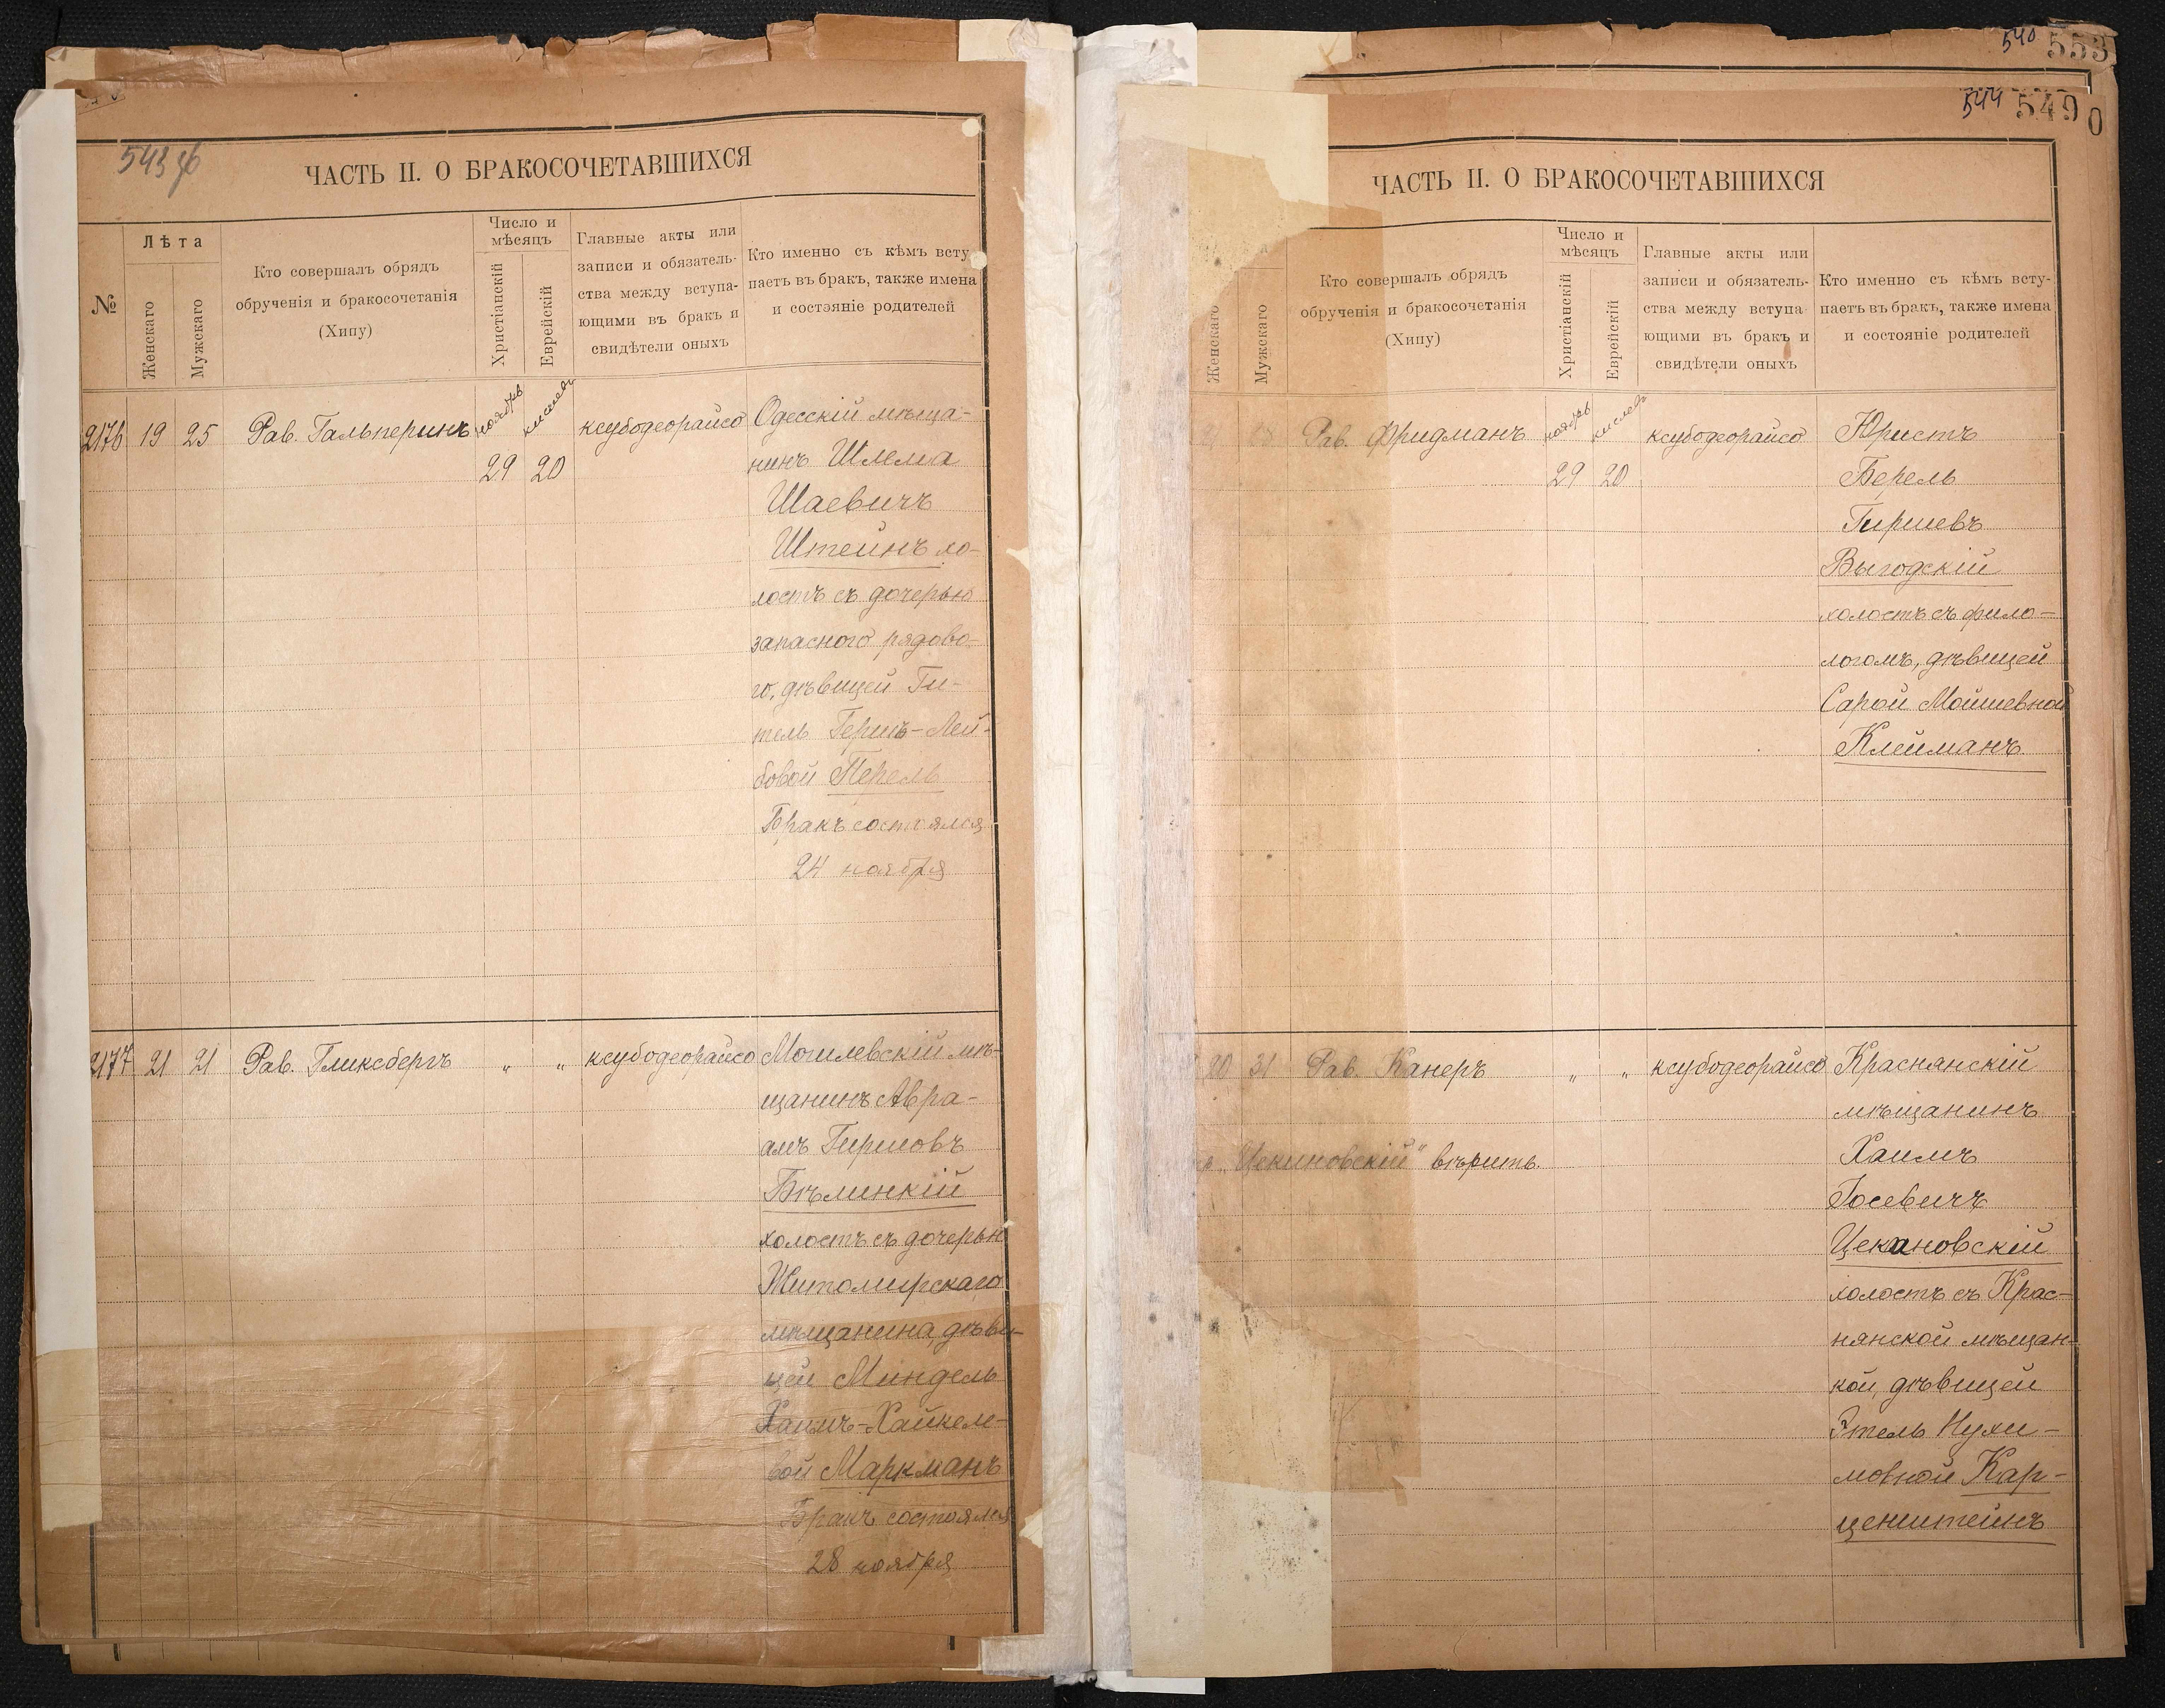 543 об
ЧАСТЬ II. О БРАКОСОЧЕТАВШИХСЯ
№
Лѣта
Женскаго
Мужскаго
Кто совершалъ обрядъ
обрученія и бракосочетанія
(Хипу)
Число и
мѣсяцъ
Христіанскій
Еврейскій
Главные акты или
записи и обязатель-
ства между вступа-
ющими въ бракъ и
свидѣтели оныхъ
Кто именно съ кѣмъ всту-
паетъ въ бракъ, также имена
и состояніе родителей
2176 19 25 Рав. Гальперинъ ноябрь кислевъ ксубодеорайсо Одесскій мѣща-
29 20 нинъ Шлема
Шаевичъ
Штейнъ хо-
лостъ съ дочерью
запасного рядово-
го, дѣвицей Ги-
тель Гершъ-Лей-
бовой Перель
Бракъ состоялся
24 ноября
2177 21 21 Рав. Гликсбергъ " " ксубодеорайсо Могилевскій мѣ-
щанинъ Авра-
амъ Гиршовъ
Бѣлинкій
холостъ съ дочерью
Житомирскаго
мѣщанина, дѣви-
цей Миндель
Хаимъ-Хайкеле-
вой Маркманъ
Бракъ состоялся
28 ноября
540 553
544 549 0
ЧАСТЬ II. О БРАКОСОЧЕТАВШИХСЯ
Женскаго
Мужскаго
Кто совершалъ обрядъ
обрученія и бракосочетанія
(Хипу)
Число и
мѣсяцъ
Христіанскій
Еврейскій
Главные акты или
записи и обязатель-
ства между вступа-
ющими въ бракъ и
свидѣтели оныхъ
Кто именно съ кѣмъ всту-
паетъ въ бракъ, также имена
и состояніе родителей
Рав. Фридманъ ноябрь кислевъ ксубодеорайсо Юристъ
29 20 Берель
Гиршевъ
Выгодскій
холостъ съ фило-
логомъ, дѣвицей
Сарой Мошиевной
Клейманъ
20 31 Рав. Канеръ " " ксубодеорайсо Краснянскій
мѣщанинъ
"Цекиновскій" вѣрить. Хаимъ
Іосевичъ
Цекановскій
холостъ съ Крас-
нянской мѣщан-
кой, дѣвицей
Этель Нухи-
мовной Кар-
ценштейнъ